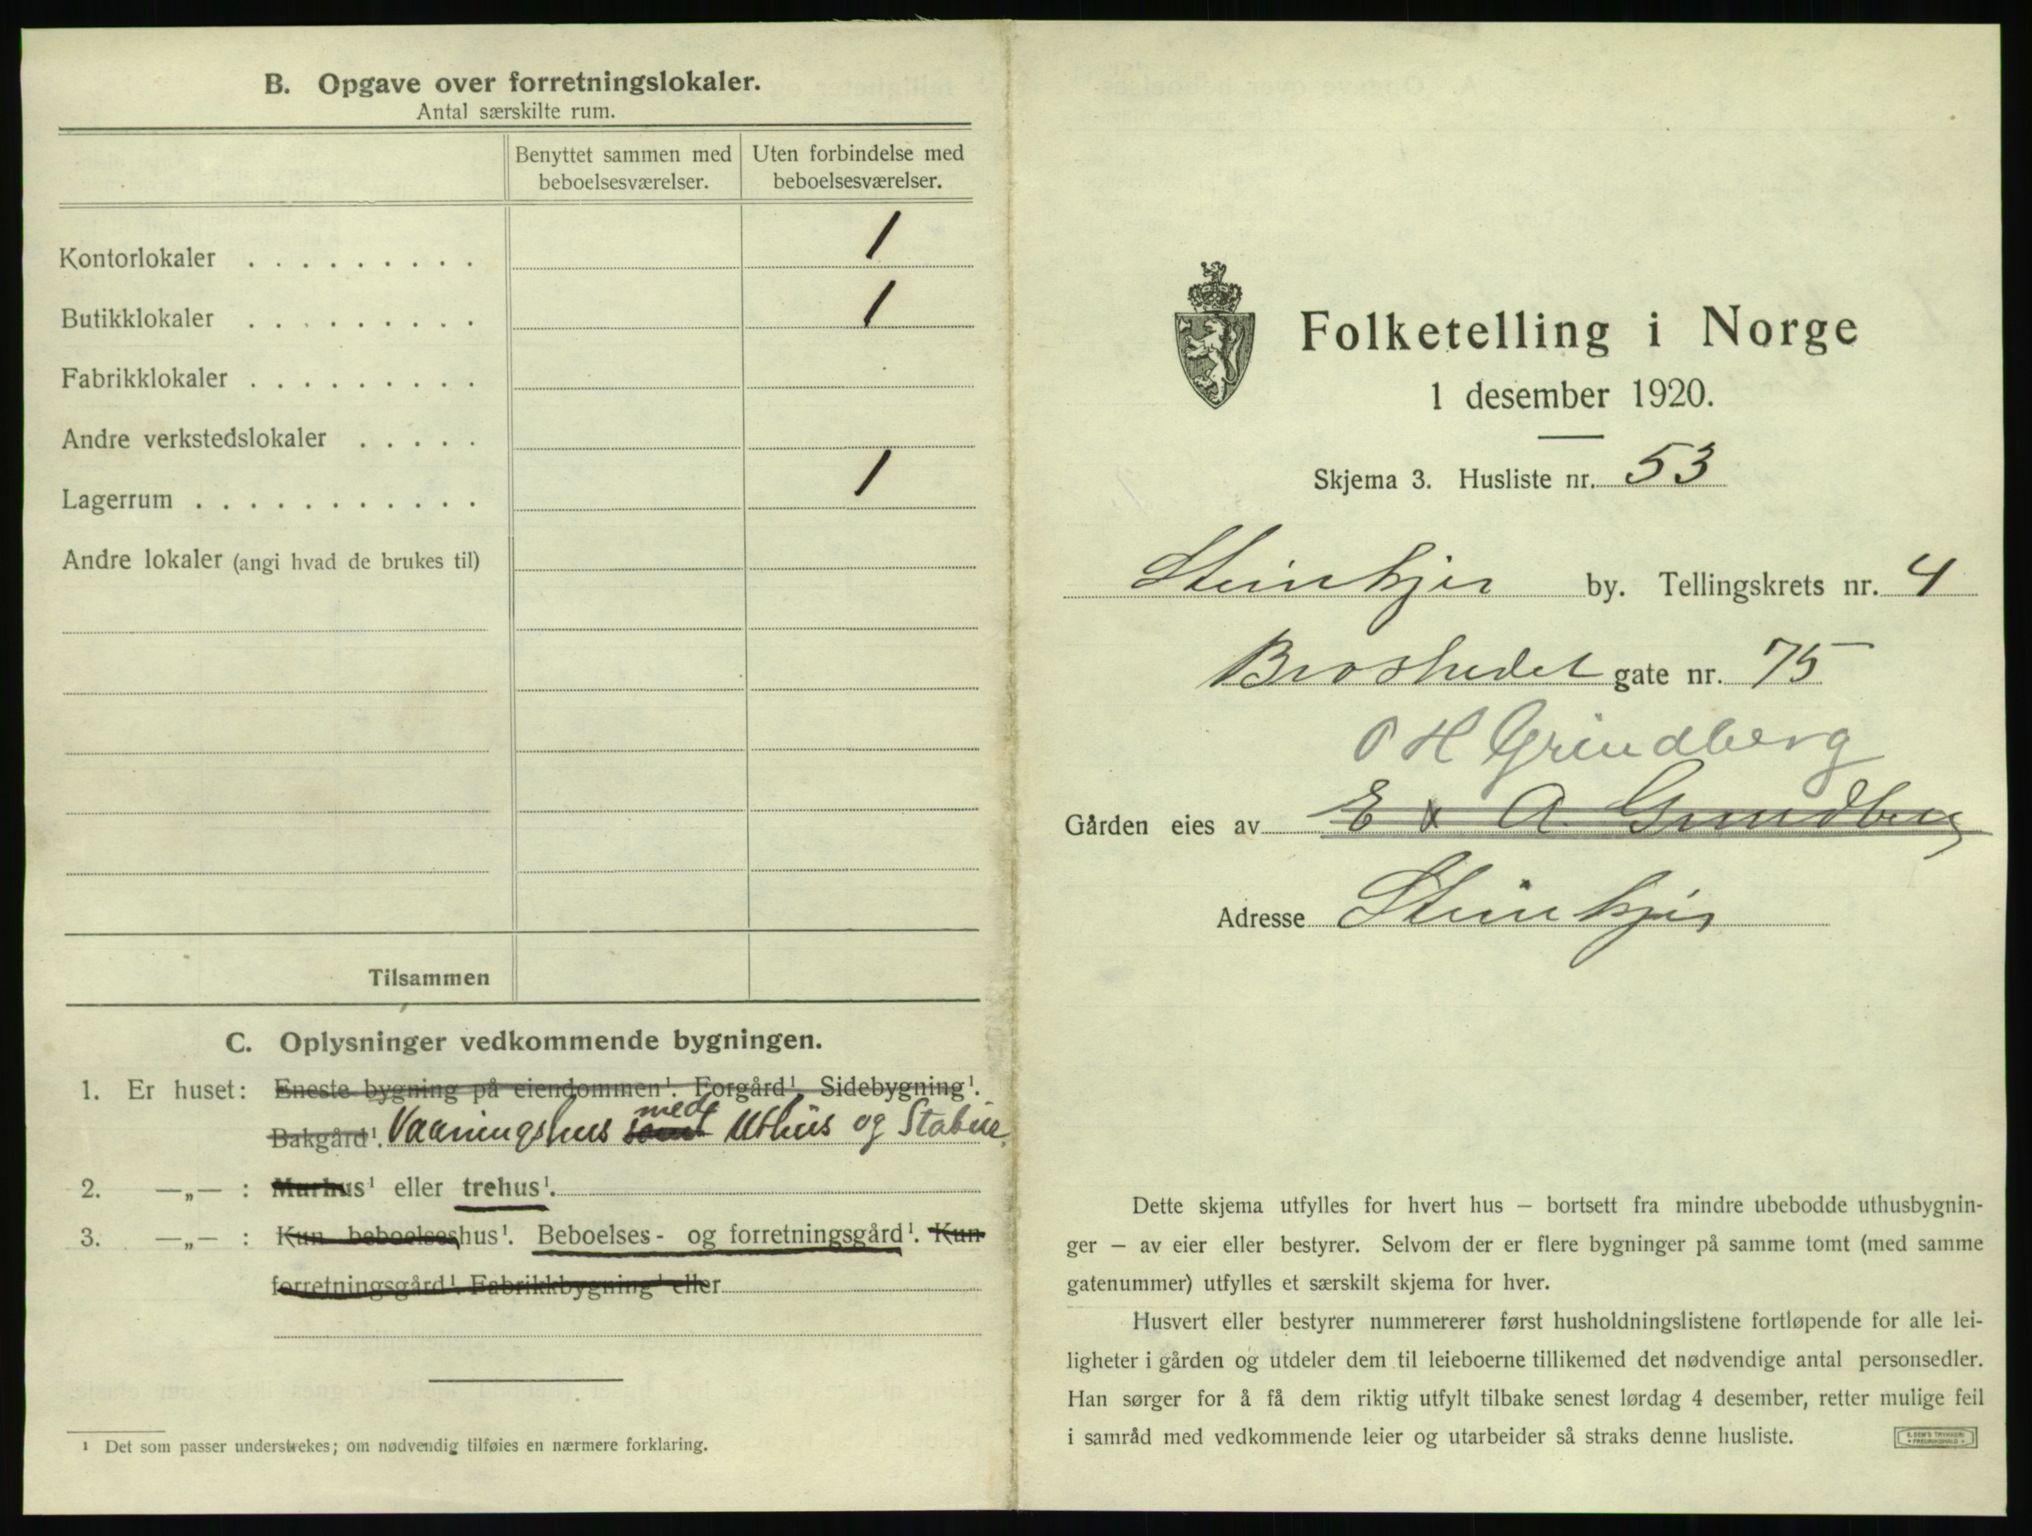 B. Opgave over forretningslokaler.
Antal særskilte rum.
Benyttet sammen med beboelsesværelser.
Uten forbindelse med beboelsesværelser.
Kontorlokaler . . . . . . . . . 1
Butikklokaler . . . . . . . . . 1
Fabrikklokaler . . . . . . . . .
Andre verkstedslokaler . . . . .
Lagerrum . . . . . . . . . . . 1
Andre lokaler (angi hvad de brukes til)
Tilsammen
C. Oplysninger vedkommende bygningen.
1. Er huset: Eneste bygning på eiendommen¹. Forgård¹. Sidebygning¹.
Bakgård¹. Vaaningshus samt med Uthus og Stabur.
2. —„— : Murhus¹ eller trehus¹.
3. —„— : Kun beboelseshus¹. Beboelses- og forretningsgård¹. Kun
forretningsgård¹. Fabrikkbygning¹ eller
¹ Det som passer understrekes; om nødvendig tilføies en nærmere forklaring.
Folketelling i Norge
1 desember 1920.
Skjema 3. Husliste nr. 53
Steinkjer by. Tellingskrets nr. 4
Brohodet gate nr. 75
O H Grindberg
Gården eies av E & A. Grindberg
Adresse Steinkjer
Dette skjema utfylles for hvert hus – bortsett fra mindre ubebodde uthusbygnin-
ger – av eier eller bestyrer. Selvom der er flere bygninger på samme tomt (med samme
gatenummer) utfylles et særskilt skjema for hver.
Husvert eller bestyrer nummererer først husholdningslistene fortløpende for alle lei-
ligheter i gården og utdeler dem til leieboerne tillikemed det nødvendige antal personsedler.
Han sørger for å få dem riktig utfylt tilbake senest lørdag 4 desember, retter mulige feil
i samråd med vedkommende leier og utarbeider så straks denne husliste.